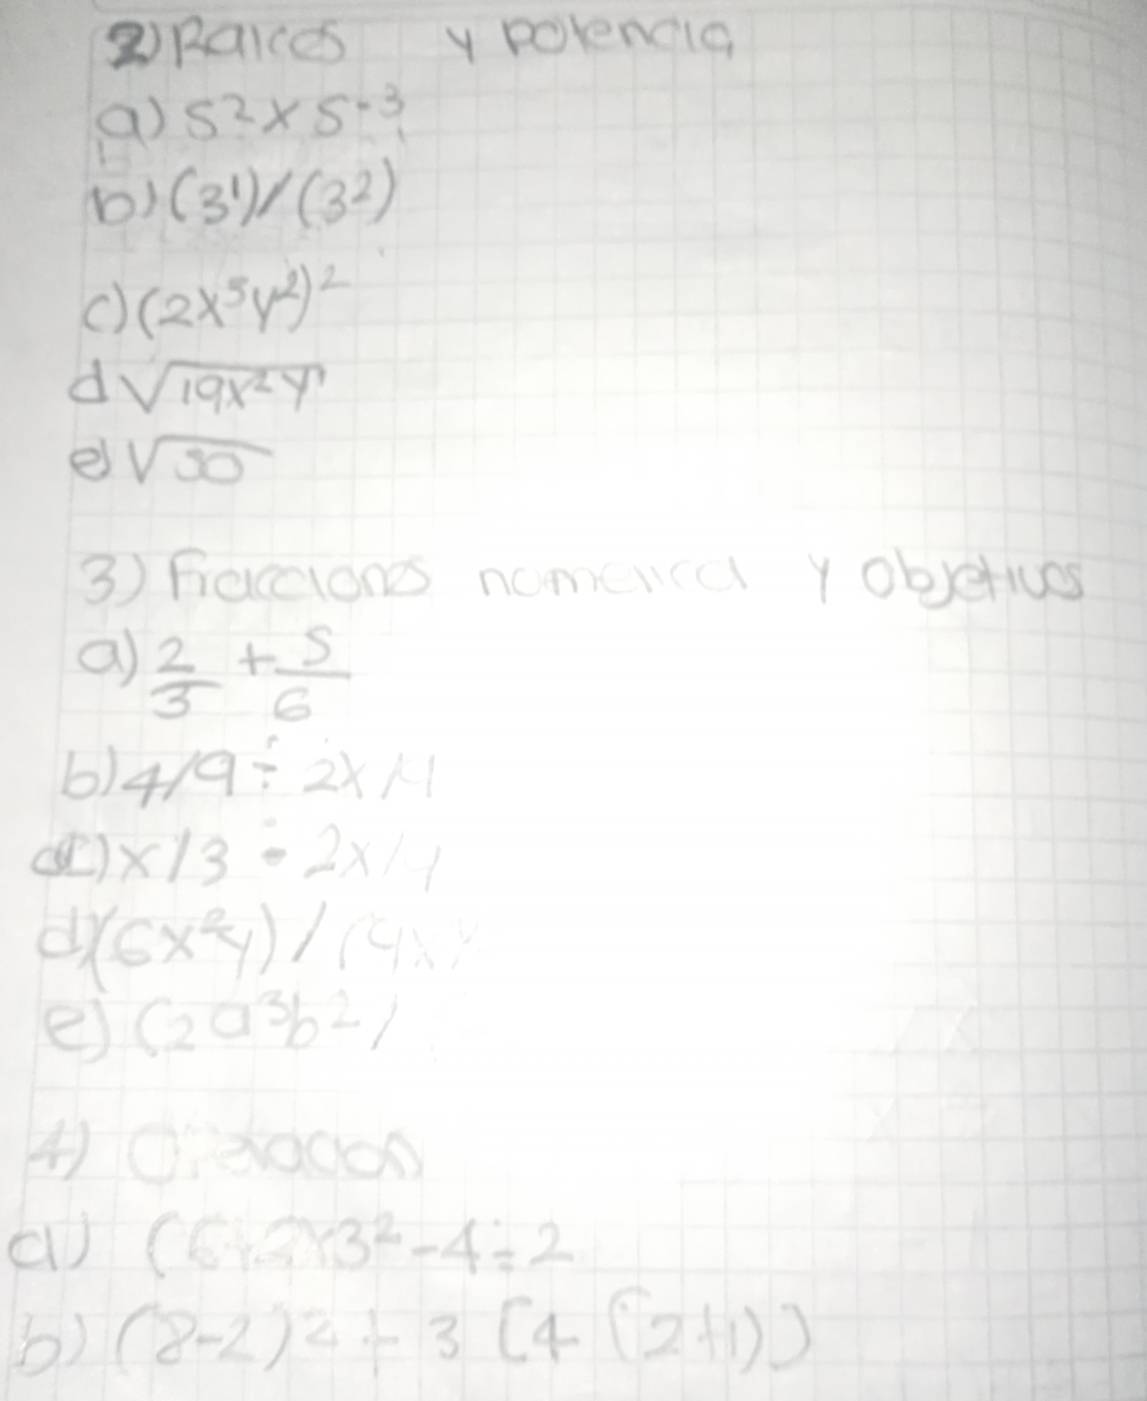 2) Raices y potencia
a) 5² x 5⁻³
b) (3¹)/(3²)
c) (2x⁵y²)²
d √19x²y¹
e) √50
3) Fracciones nomerica y Objetivos
a) 2/3 + 5/6
b) 4/9 ÷ 2x/4
c) x/3 ÷ 2x/4
d) (6x²y) / (4x
e) (2a³b²)
4)
a) (6+2)x3²-4÷2
b) (8-2)² + 3 [4 (2+1)]